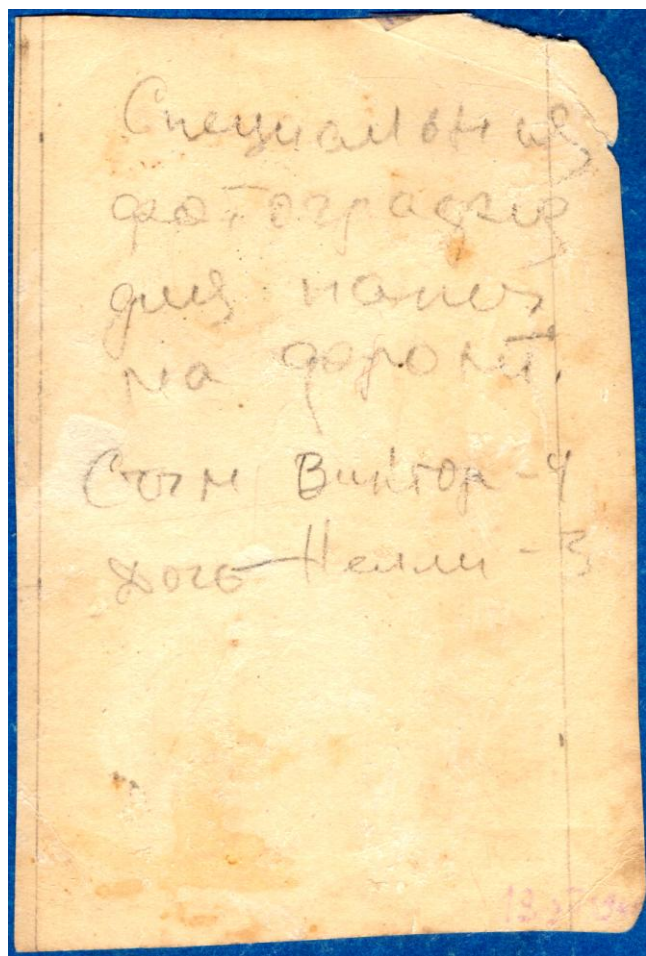 Специальная
фотография
для папы
на фронт.
Сын Виктор - 4
дочь Нелли - 3